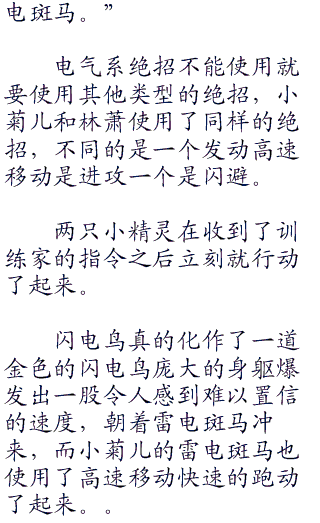 电斑马。”
电气系绝招不能使用就
要使用其他类型的绝招，小
菊儿和林萧使用了同样的绝
招，不同的是一个发动高速
移动是进攻一个是闪避。
两只小精灵在收到了训
练家的指令之后立刻就行动
了起来。
闪电鸟真的化作了一道
金色的闪电鸟庞大的身躯爆
发出一股令人感到难以置信
的速度，朝着雷电斑马冲
来，而小菊儿的雷电斑马也
使用了高速移动快速的跑动
了起来。。